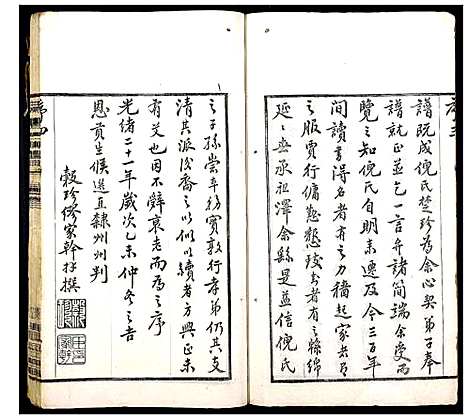 譜既成倪氏楚珍為余心契弟子奉
譜就正並乞一言弁諸簡端余受而
覽之知倪氏自明末遷及今三百年
間讀書得名者有之力穡起家者有
之服賈行傭
者有之綿綿
延延無承祖澤余繇是益信倪氏
之子孫崇年務實敦行孝弟仍其支
清其派後喬之以似以續者方興正未
有艾也因不辭衰老而為之序
光緒二十一年歲次乙未仲冬之吉
恩貢生候選直隸州州判
穀珍繆家幹拜撰